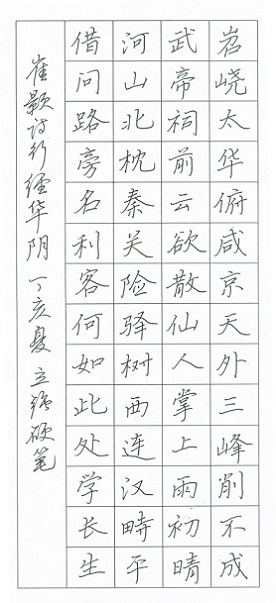 岧峣太华俯咸京天外三峰削不成
武帝祠前云欲散仙人掌上雨初晴
河山北枕秦关险驿树西连汉畤平
借问路旁名利客何如此处学长生
崔颢诗行经华阴丁亥夏立强硬笔